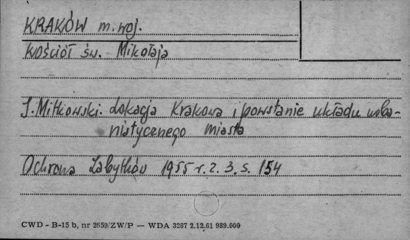 KRAKÓW m. woj.
Kościół św. Mikołaja
J. Mitkowski. Lokacja Krakowa i powstanie układu urba-
nistycznego miasta
Ochrona Zabytków 1955 r. z. 3. s. 154
CWD - B-15 b, nr 2859/ZW/P — WDA 3287 2.12.61 989.000